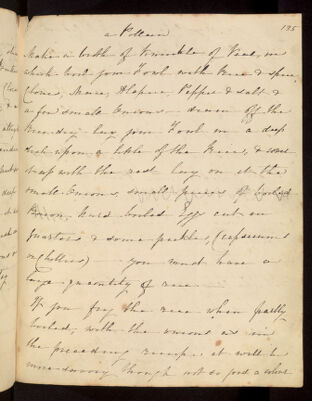 195
a Pollau
Make a broth of Knuckle of Veal, in
which boil your Fowl with Rice & spice,
Cloves, Mace, Allspice Pepper & salt &
a few small Onions - drain off the
lay your Fowl in a deep
dish upon a little of the Rice, &
it up with the rest lay on it the
small Onions, small pieces of boiled
Bacon, hard boiled Eggs cut in
quarters & some pickles, (capsicums
or chillies) you must have a
large quantity of rice
If you fry the rice when partly
boiled, with the onions as in
the preceding receipt, it will be
more savory though not so good a